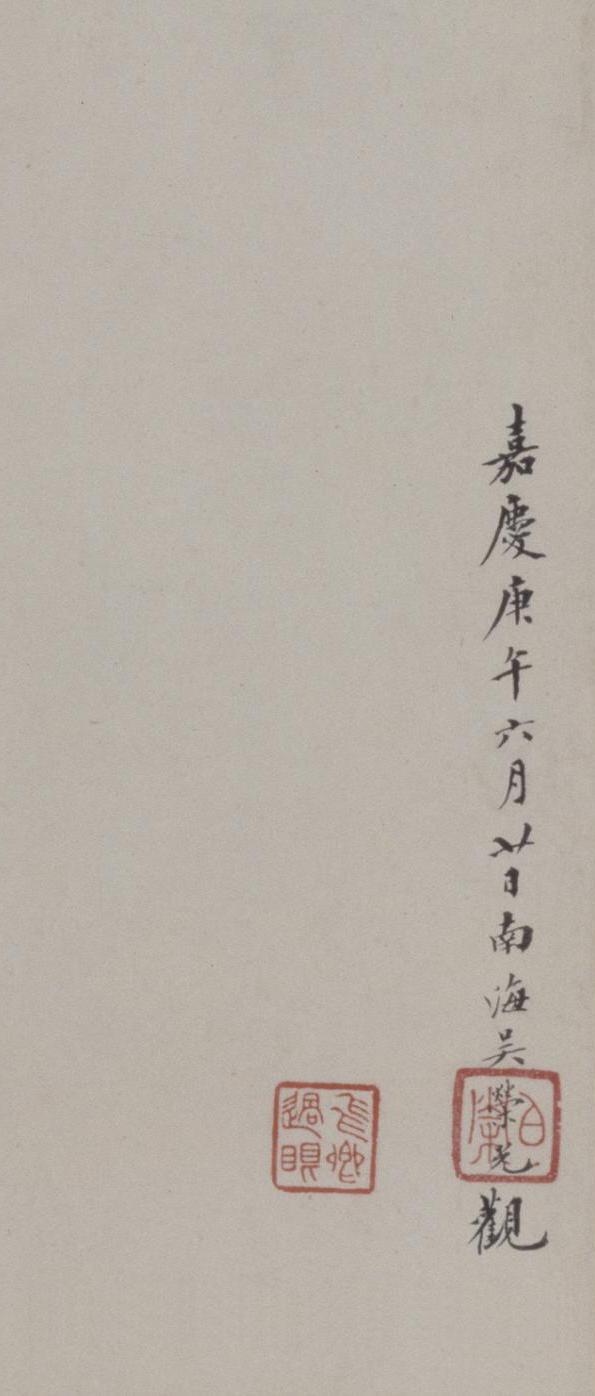 嘉慶庚午六月廿日南海吳榮光觀
伯榮
過眼